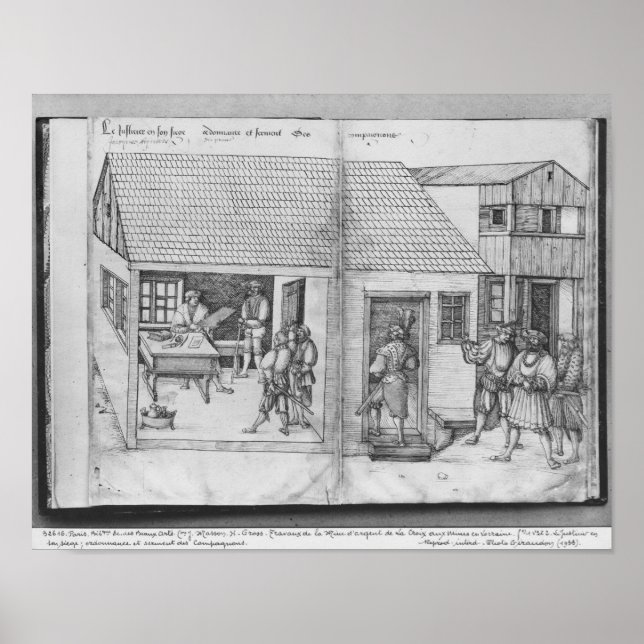 Le Justicier en son siege ordonnance et serment Des compaignons
32616. Paris. Bib. Ec. des Beaux Arts. (Don J. Masson. H. Gross. Travaux de la Mine d'argent de La Croix aux Mines en Lorraine. Le Justicier en
son siege; ordonnance et serment des Compagnons. Reprod. interd. Photo Giraudon (1938).